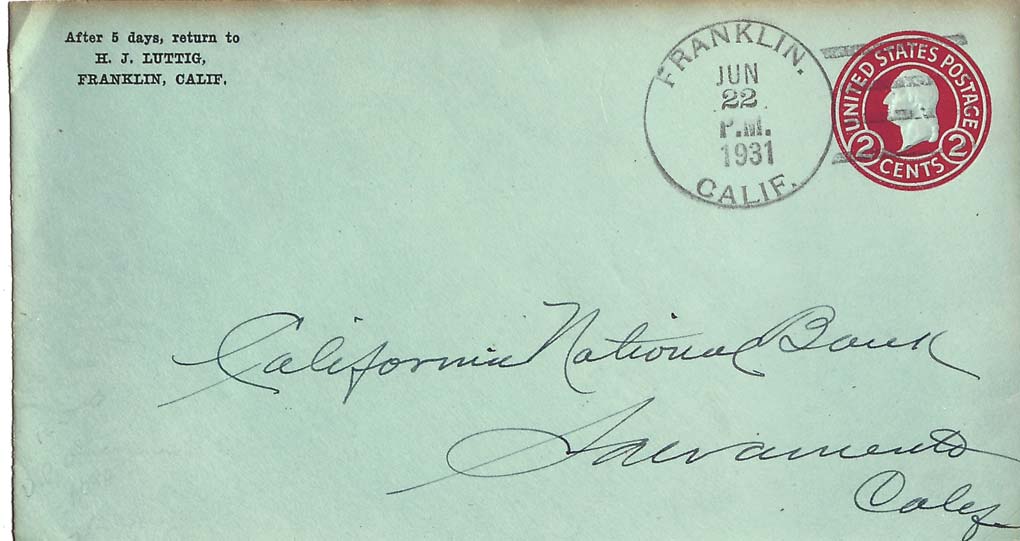 After 5 days, return to
H. J. LUTTIG,
FRANKLIN, CALIF.
FRANKLIN.
JUN
22
P.M.
1931
CALIF.
UNITED STATES POSTAGE
2 CENTS 2
California National Bank
Sacramento
Calif